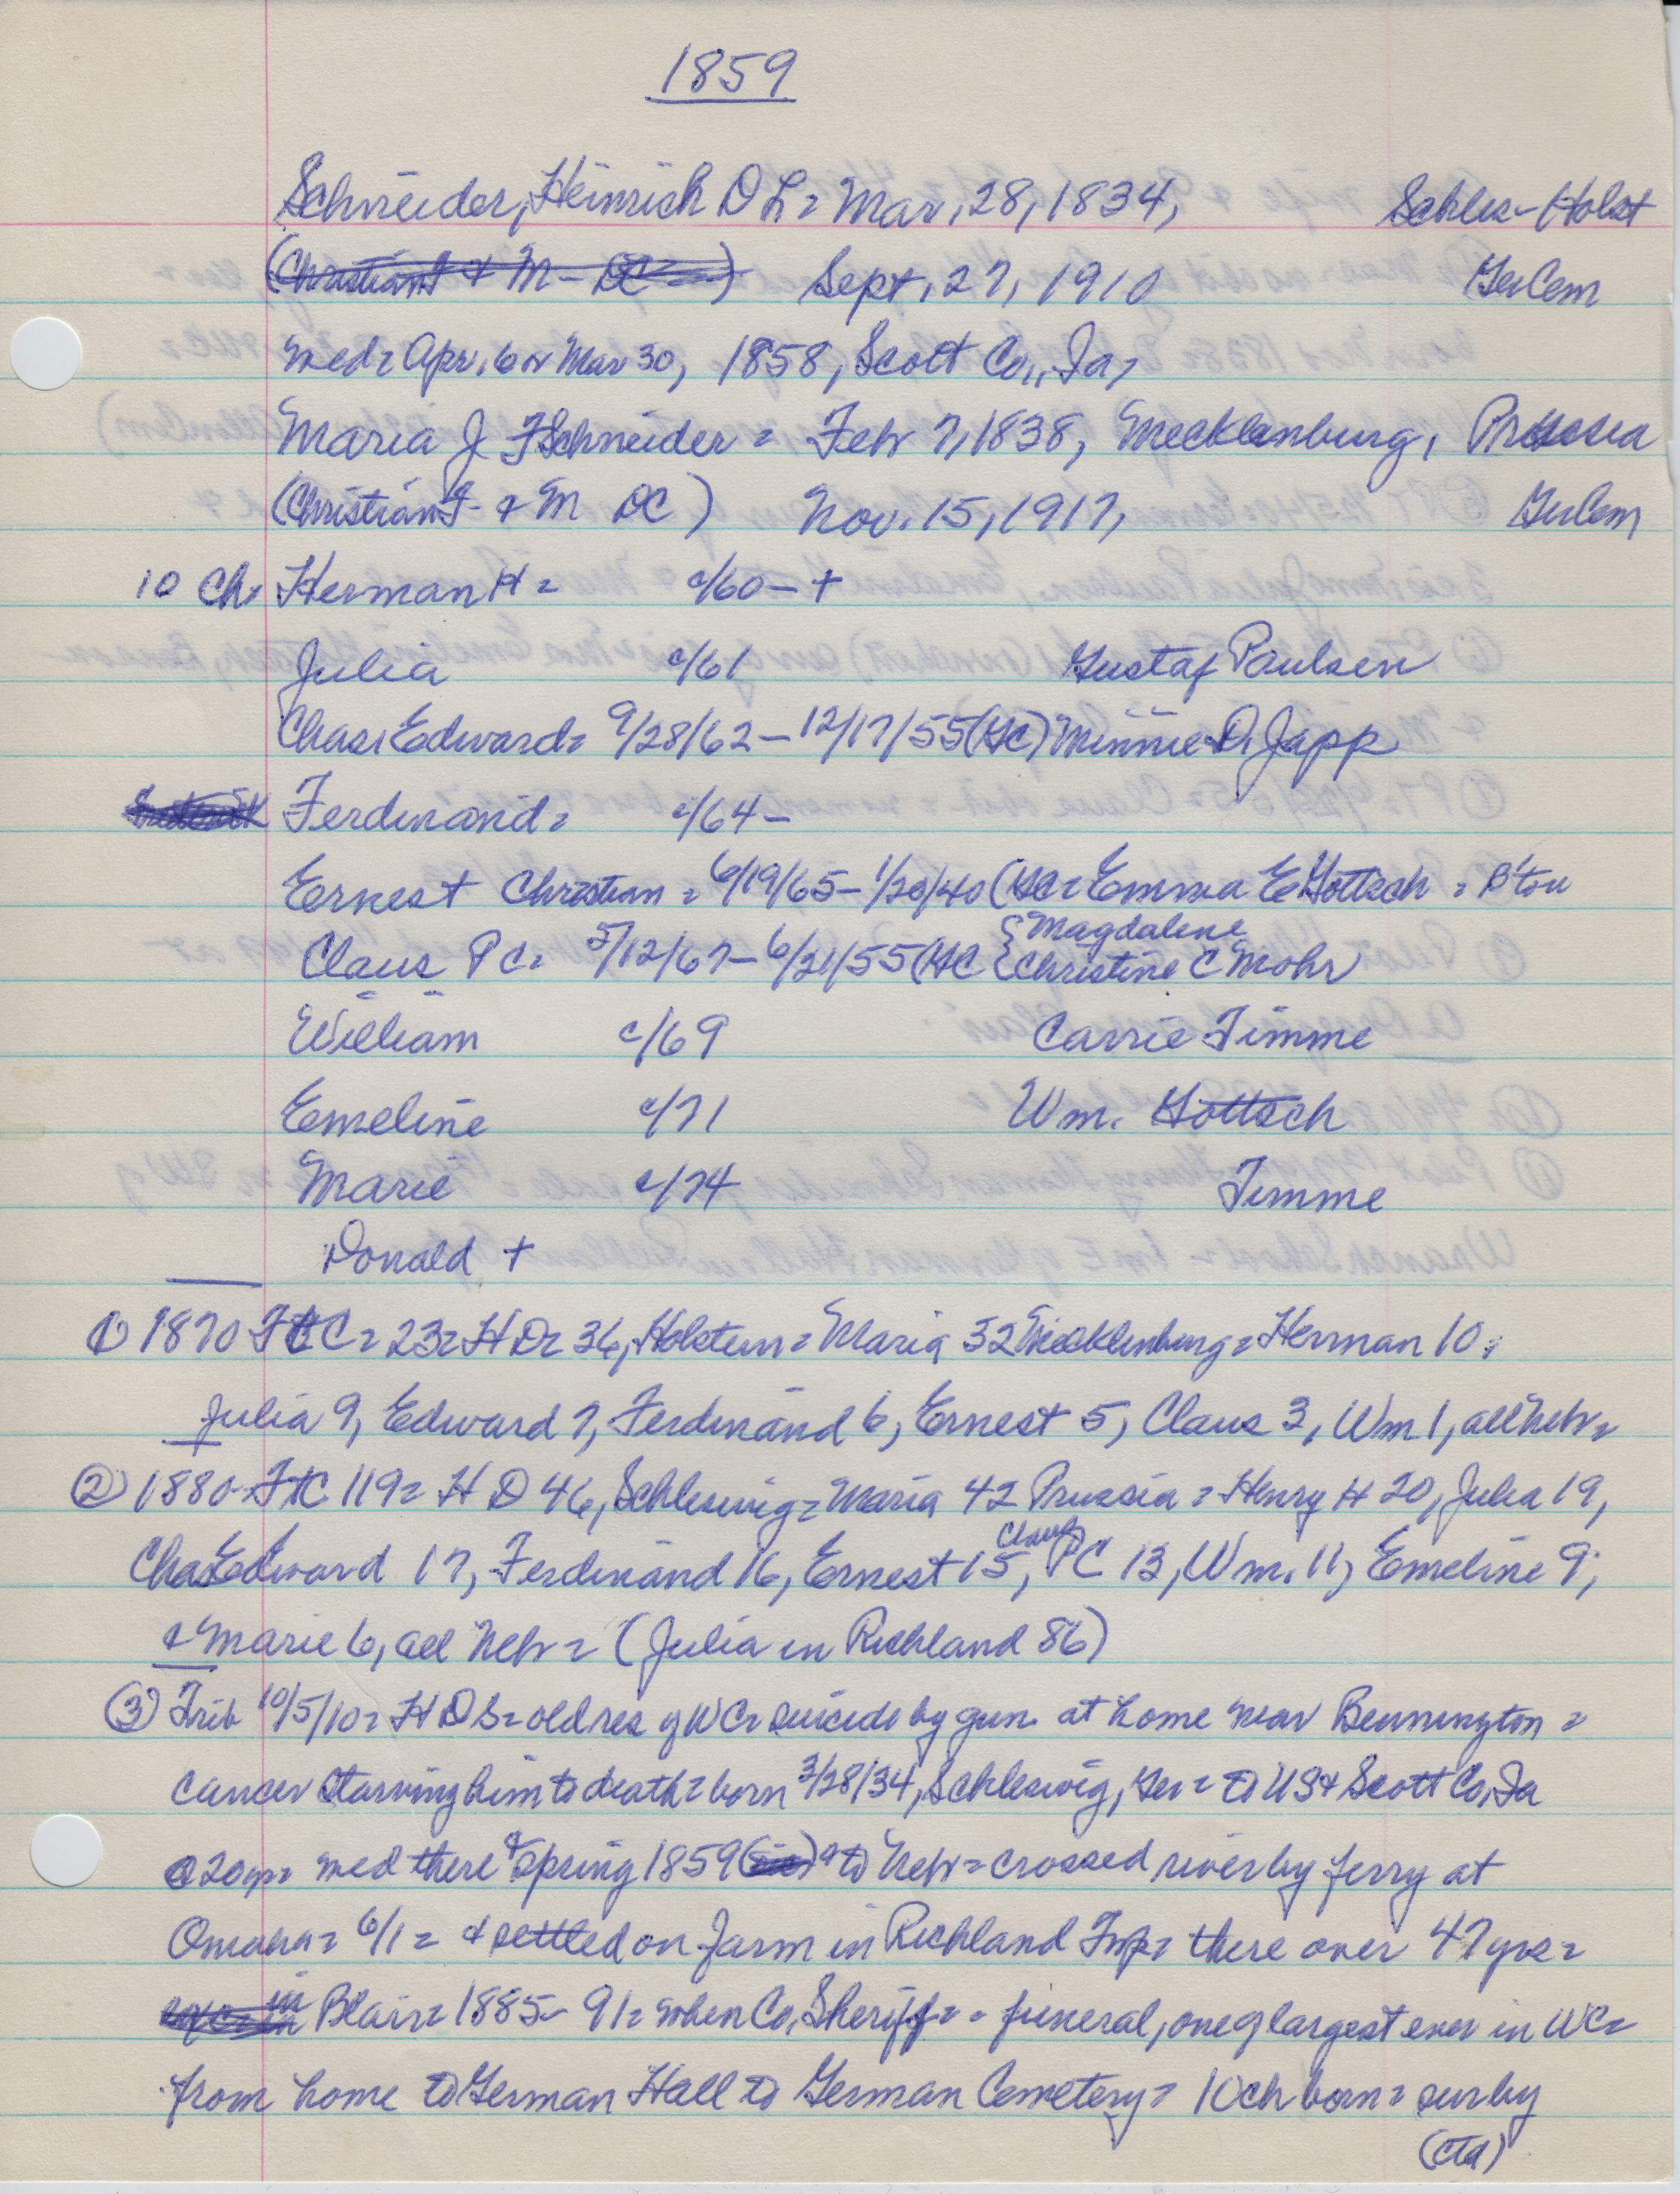 1859
Schneider, Heinrich D L = Mar. 28, 1834, Schles-Holst
(Christian F & M - DC) Sept. 27, 1910 GerCem
med = Apr. 6 or Mar 30, 1858, Scott Co., Ia,
Maria J F Schneider = Feb 7, 1838, Mecklenburg, Prussia
(Christian F & M DC) Nov. 15, 1917, GerCem
10 Ch: Herman H = c/60 - +
Julia c/61 Gustaf Paulsen
Chas. Edward = 9/28/62 - 12/17/55 (GC) Minnie D. Japp
Ferdinand = c/64 -
Ernest Christian = 6/19/65 - 1/20/40 (GC = Emma E Gottsch = B'ton
Claus P C = 5/12/67 - 6/21/55 (GC { Magdalene
Christine C Mohr
William c/69 Carrie Timme
Emeline c/71 Wm. Gottsch
Marie c/74 Timme
Donald +
① 1870 FtC = 23 = H D = 36, Holstein = Maria 32 Mecklenburg = Herman 10,
Julia 9, Edward 7, Ferdinand 6, Ernest 5, Claus 3, Wm 1, all Neb =
② 1880 FtC 119 = H D 46, Schleswig = Maria 42 Prussia = Henry H 20, Julia 19,
Chas Edward 17, Ferdinand 16, Ernest 15, Claus PC 13, Wm. 11, Emeline 9,
& Marie 6, all Neb = (Julia in Richland 86)
③ Trib 10/5/10 = H D S = old res of WC = suicide by gun at home near Bennington =
cancer starving him to death = born 3/28/34, Schleswig, Ger = to US & Scott Co, Ia
@ 20 yr = med there & spring 1859 to Neb = crossed river by ferry at
Omaha = 6/1 = & settled on farm in Richland Twp = there over 47 yrs =
in Blair = 1885 - 91 = when Co. Sheriff = - funeral, one of largest ever in WC =
from home to German Hall to German Cemetery = 10 ch born = sur by
(ctd)